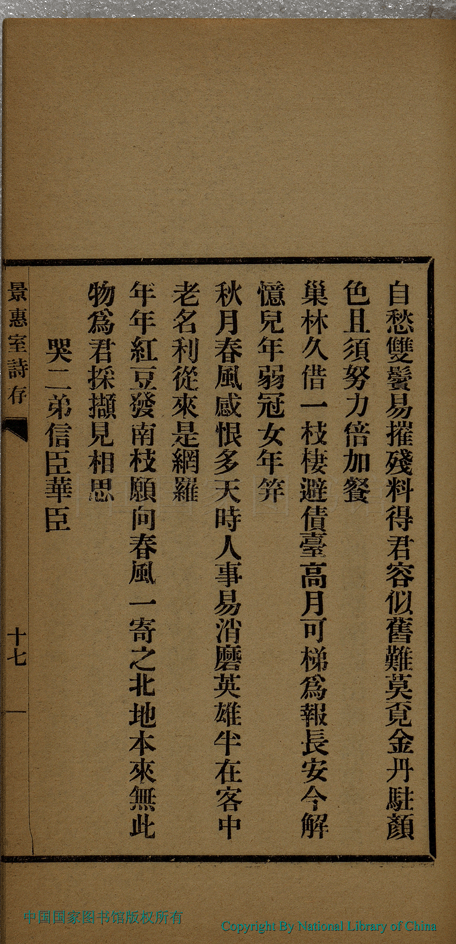 自愁雙鬢易摧殘料得君容似舊難莫覓金丹駐顏
色且須努力倍加餐
巢林久借一枝棲避債臺高月可梯爲報長安今解
憶兒年弱冠女年筓
秋月春風感恨多天時人事易消磨英雄半在客中
老名利從來是網羅
年年紅豆發南枝願向春風一寄之北地本來無此
物爲君採擷見相思
哭二弟信臣華臣
景惠室詩存
十七
中国国家图书馆版权所有
Copyright By National Library of China